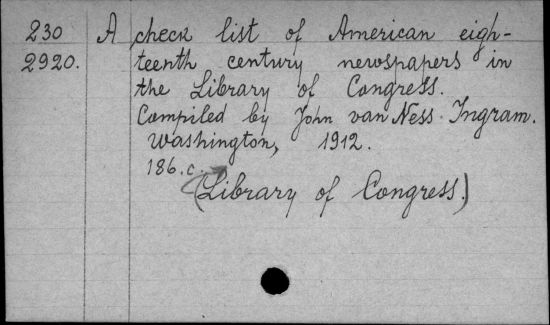 230 A check list of American eigh-
2920. teenth century newspapers in
the Library of Congress.
Compiled by John van Ness Ingram.
Washington, 1912.
186.c.
(Library of Congress.)